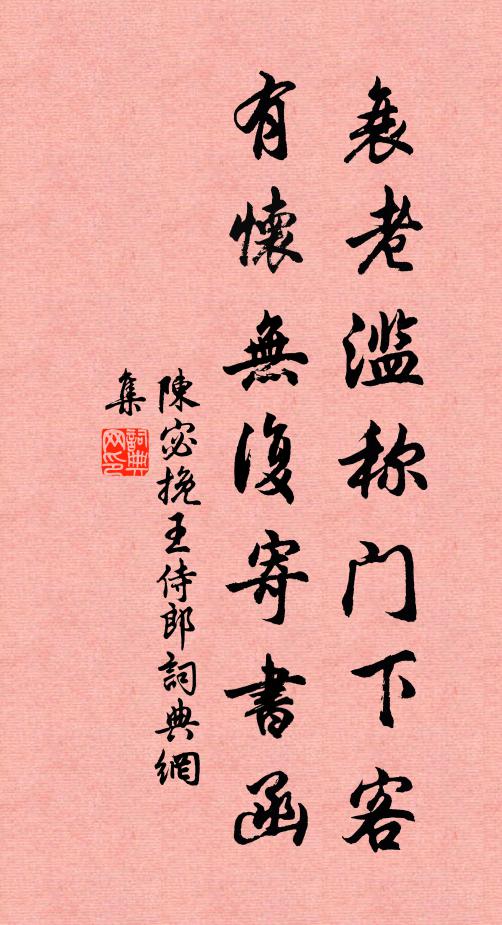 衰老滥称门下客
有懷無復寄書函
陳宓挽王侍郎詞典網
集
詞典网印